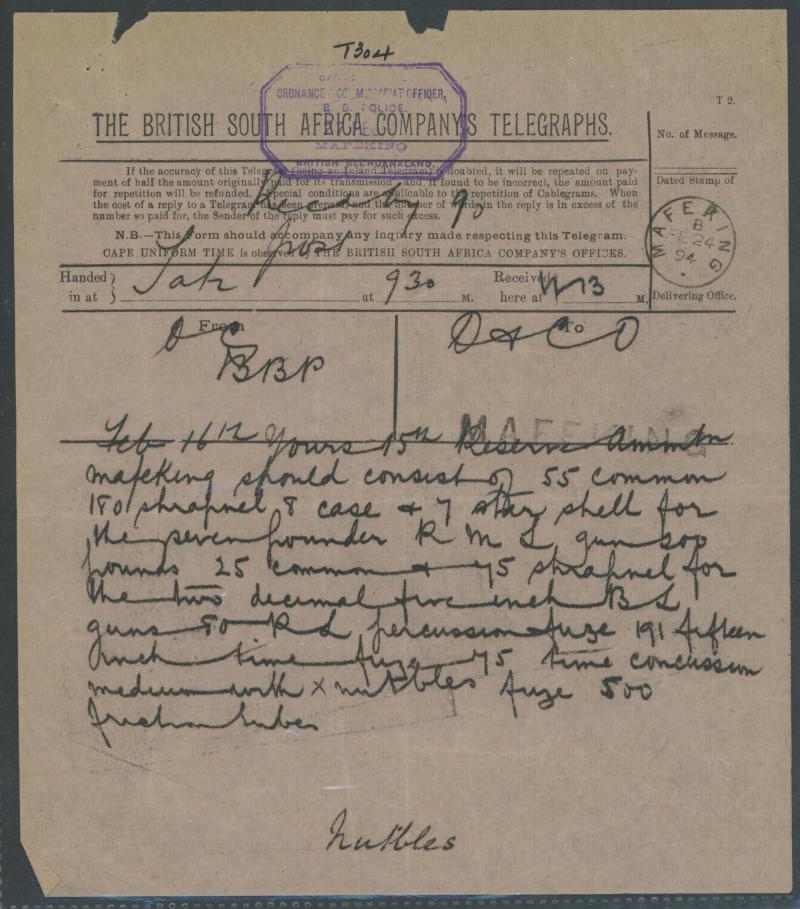 T304
ORDNANCE & COMMISSARIAT OFFICER,
B. B. POLICE.
MAFEKING
BRITISH BECHUANALAND.
T 2.
THE BRITISH SOUTH AFRICA COMPANY'S TELEGRAPHS.
No. of Message.
If the accuracy of this Telegram (being an Inland Telegram) is doubted, it will be repeated on pay-
ment of half the amount originally paid for its transmission, and, if found to be incorrect, the amount paid
for repetition will be refunded. Special conditions are applicable to the repetition of Cablegrams. When
the cost of a reply to a Telegram has been prepaid, and the number of words in the reply is in excess of the
number so paid for, the Sender of the reply must pay for such excess.
90
post
N.B.—This Form should accompany any inquiry made respecting this Telegram.
CAPE UNIFORM TIME is observed by THE BRITISH SOUTH AFRICA COMPANY'S OFFICES.
Dated Stamp of
MAFEKING
B
FE 24
94
Delivering Office.
Handed in at at 930 M. Received here at M.
From
OC
BBP
To
O & C O
MAFEKING
Feb 16th Yours 15th Reserve ammtn
mafeking should consist of 55 common
180 shrapnel 8 case & 7 star shell for
the seven pounder R M L gun
pounds 25 common & 75 shrapnel for
the two decimal five inch B L
guns 80 R L percussion fuze 191 fifteen
inch time fuze 75 time concussion
medium with x nutbles fuze 500
friction tubes
Nutbles